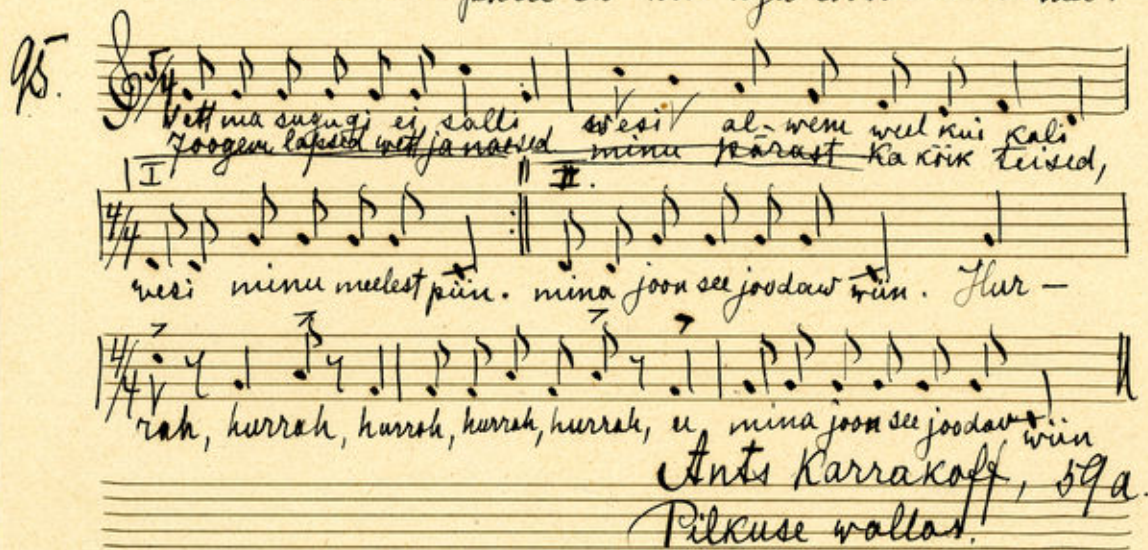 95.
5/4 Vett ma sugugi ei salli wesi al-wem weel kui kali
Joogem lapsed wett ja naised minu pärast ka kõik teised,
I II.
4/4 wesi minu meelest piin. mina joon see joodaw wiin. Hur-
4/4 rah, hurrah, hurrah, hurrah, hurrah, ei mina joon see joodaw wiin
Ants Karrakoff, 59 a.
Pilkuse wallas.